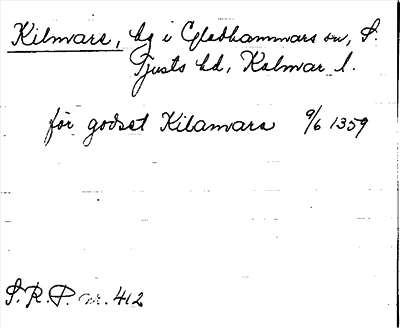 Kilmare, hg i Gladhammars sn, S.
Tjusts hd, Kalmar l.
för godset Kilamara 9/6 1359
S.R.P. nr. 412